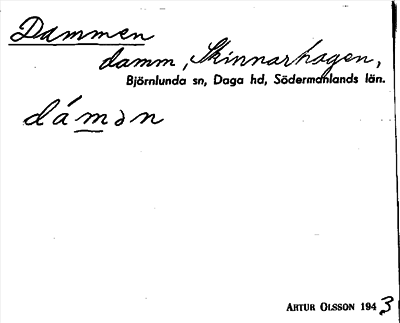 Dammen
damm, Skinnarhagen,
Björnlunda sn, Daga hd, Södermanlands län.
dámən
ARTUR OLSSON 1943